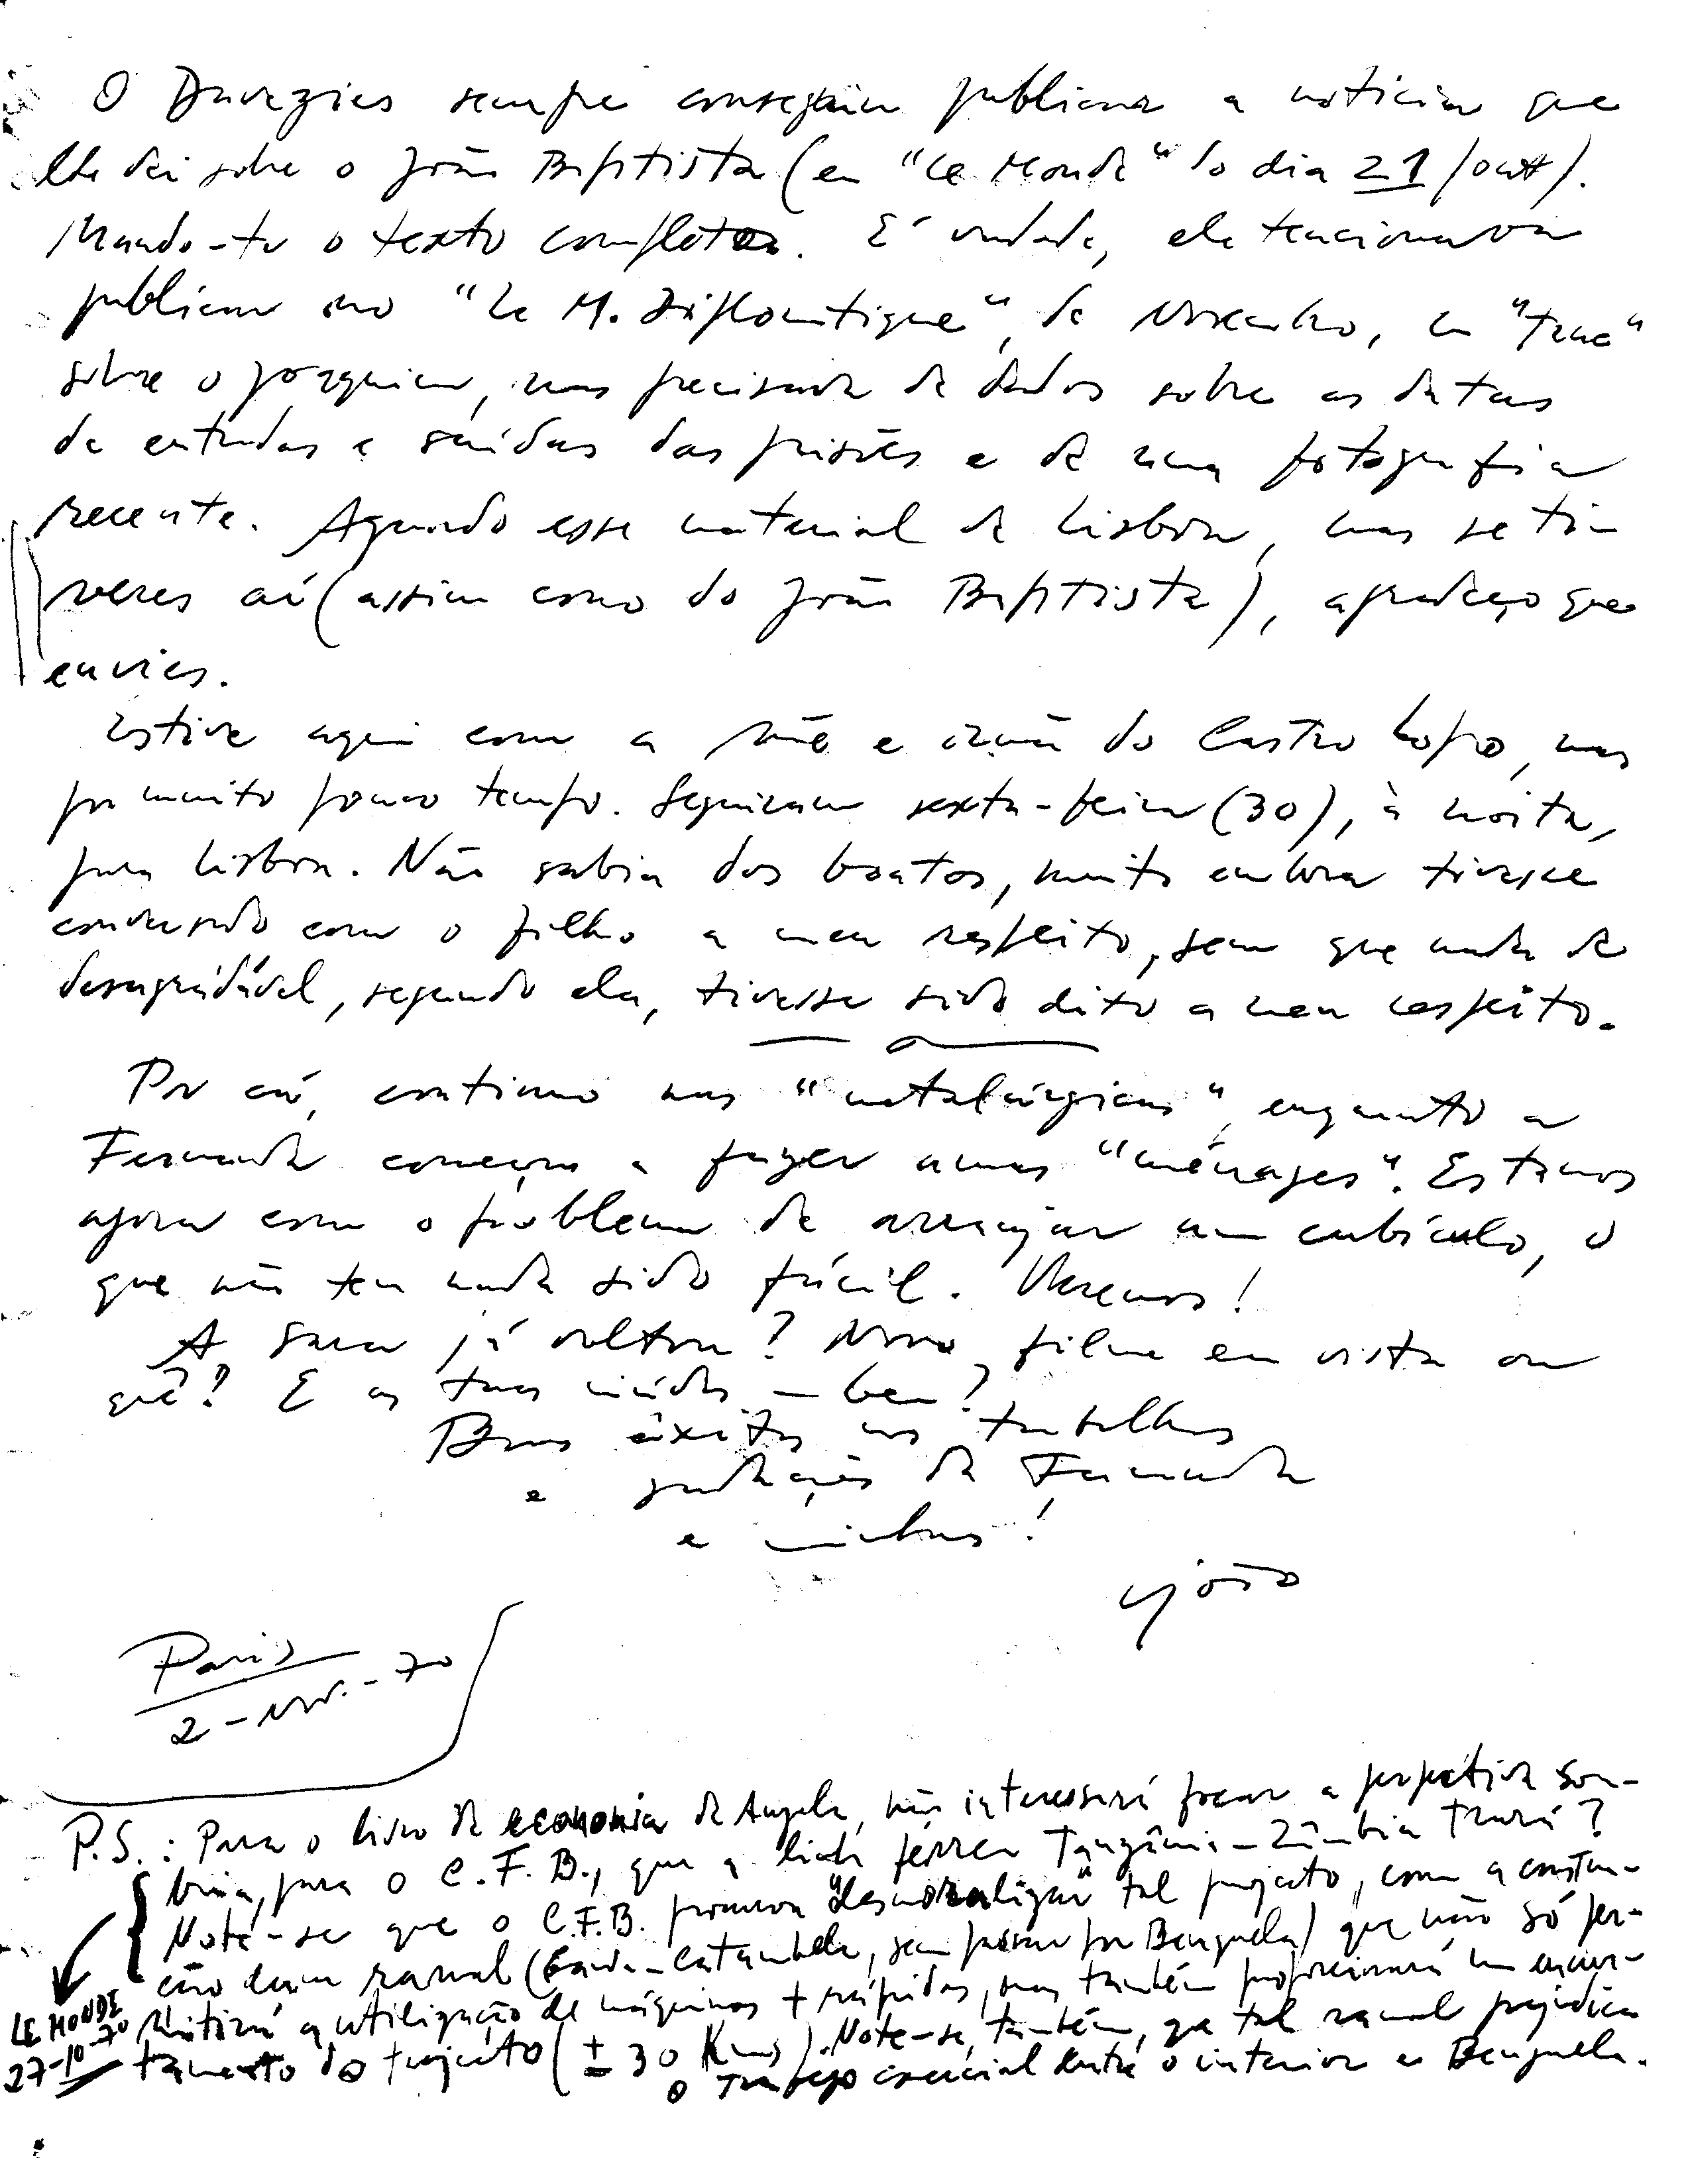 O Davezies sempre conseguiu publicar a notícia que
lhe dei sobre o João Baptista (em "Le Monde" do dia 21/out).
Mando-te o texto completo. É verdade, ele tencionava
publicar no "Le M. Diplomatique", de Novembro, um "truc"
sobre o Joaquim, mas precisava de dados sobre as datas
de entradas e saídas das prisões e de uma fotografia
recente. Aguardo esse material de Lisboa, mas se ti-
veres aí (assim como do João Baptista), agradeço que
envies.
Estive aqui com a mãe e irmã do Castro Lopo, mas
por muito pouco tempo. Seguiram sexta-feira (30), à noite,
para Lisboa. Não sabia dos boatos, muito embora tivesse
conversado com o filho a meu respeito, sem que nada de
desagradável, segundo ela, tivesse sido dito a meu respeito.
Por cá, continuo nas "metalúrgicas", enquanto a
Fernanda começou a fazer umas "ménages". Estamos
agora com o problema de arranjar um cubículo, o
que não tem nada sido fácil. Veremos!
A Sara já voltou? Novo filme em vista ou
quê? E as tuas miúdas — bem?
Bons êxitos nos trabalhos
e saudações da Fernanda
e minhas!
João
Paris
2-Nov.-70
P.S.: Para o livro de economia de Angola, não interessará focar a perspectiva som-
bria, para o C.F.B., que a linha férrea Tanzânia-Zâmbia trará?
Note-se que o C.F.B. procura "desmoralizar" tal projecto, com a constru-
ção dum ramal (-Catumbela, sem passar por Benguela) que não só per-
mitirá a utilização de máquinas + rápidas, mas também proporcionará um encur-
tamento do trajecto (± 30 Kms). Note-se, também, que tal ramal prejudica
o tráfego comercial entre o interior e Benguela.
LE MONDE
27-10-70